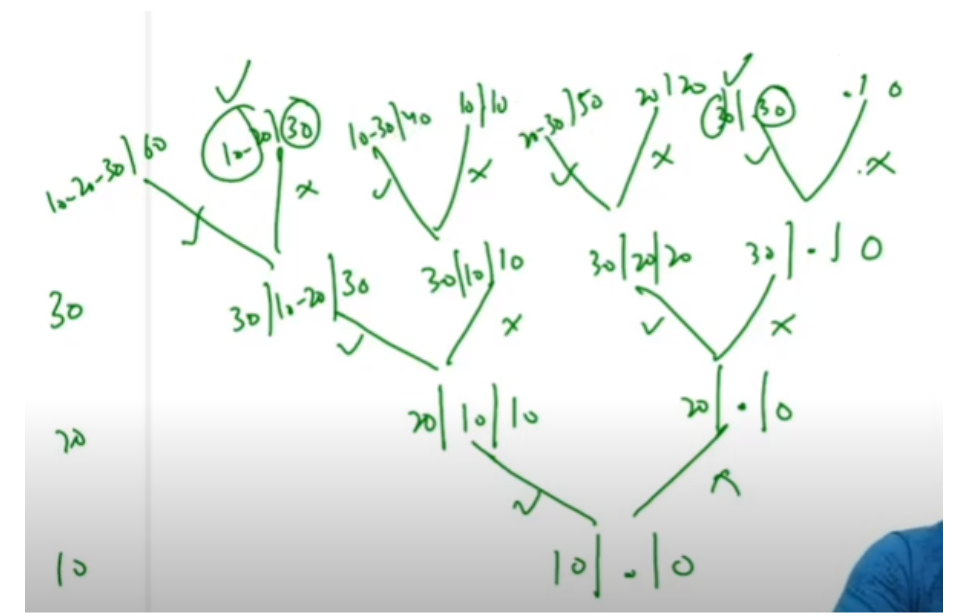 10-20-30|60
10-20|30
10-30|40
10|10
20-30|50
20|20
30|.|30
.|0
30
30|10-20|30
30|10|10
30|20|20
30|.|0
20
20|10|10
20|.|0
10
10|.|0